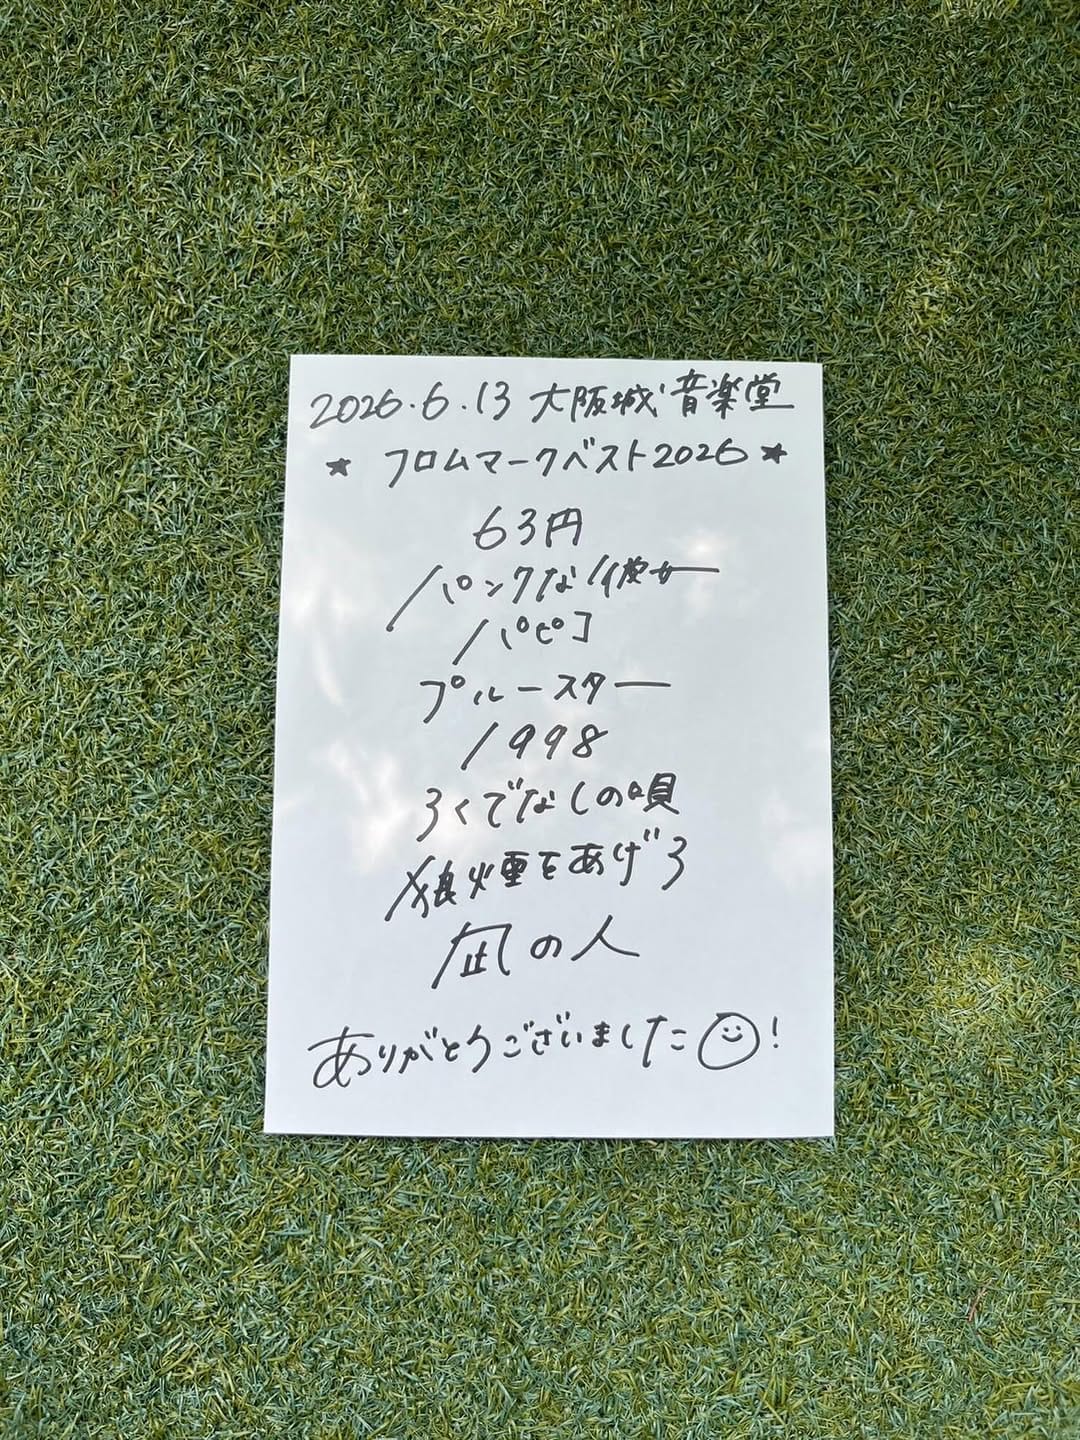 2026.6.13 大阪城音楽堂
★ フロムマークベスト2026 ★
63円
パンクな彼女
パピコ
プルースター
1998
ろくでなしの唄
狼煙をあげろ
凪の人
ありがとうございました!